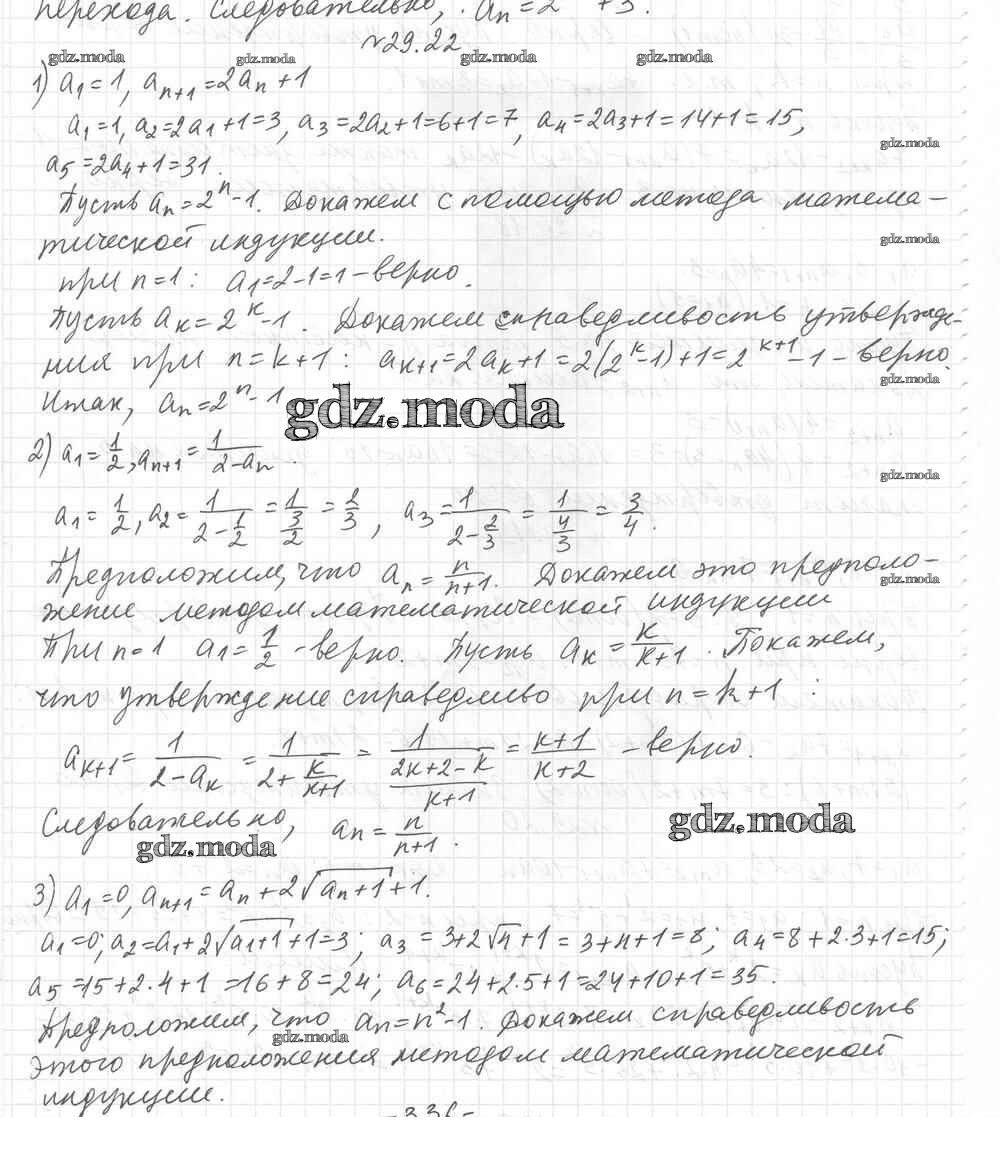 перехода. Следовательно, aₙ=2 +3.
№29.22
gdz.moda gdz.moda gdz.moda gdz.moda
1) a₁=1, aₙ₊₁=2aₙ+1
a₁=1, a₂=2a₁+1=3, a₃=2a₂+1=6+1=7, a₄=2a₃+1=14+1=15,
gdz.moda
a₅=2a₄+1=31.
Пусть aₙ=2ⁿ-1. Докажем с помощью метода матема-
тической индукции.
gdz.moda
при n=1: a₁=2-1=1 – верно.
Пусть aₖ=2ᵏ-1. Докажем справедливость утвержде-
ния при n=k+1: aₖ₊₁=2aₖ+1=2(2ᵏ-1)+1=2ᵏ⁺¹-1 – верно.
gdz.moda
Итак, aₙ=2ⁿ-1
gdz.moda
2) a₁=1/2, aₙ₊₁=1/(2-aₙ).
gdz.moda
a₁=1/2, a₂=1/(2-1/2)=1/(3/2)=2/3, a₃=1/(2-2/3)=1/(4/3)=3/4.
Предположим, что aₙ=n/(n+1). Докажем это предполо-
gdz.moda
жение методом математической индукции
При n=1 a₁=1/2 – верно. Пусть aₖ=k/(k+1). Покажем,
что утверждение справедливо при n=k+1:
aₖ₊₁=1/(2-aₖ)=1/(2+k/(k+1))=1/((2k+2-k)/(k+1))=(k+1)/(k+2) – верно.
Следовательно, aₙ=n/(n+1).
gdz.moda
gdz.moda
3) a₁=0, aₙ₊₁=aₙ+2√(aₙ+1)+1.
a₁=0; a₂=a₁+2√(a₁+1)+1=3; a₃=3+2√4+1=3+4+1=8; a₄=8+2·3+1=15;
a₅=15+2·4+1=16+8=24; a₆=24+2·5+1=24+10+1=35.
Предположим, что aₙ=n²-1. Докажем справедливость
gdz.moda
этого предположения методом математической
индукции.